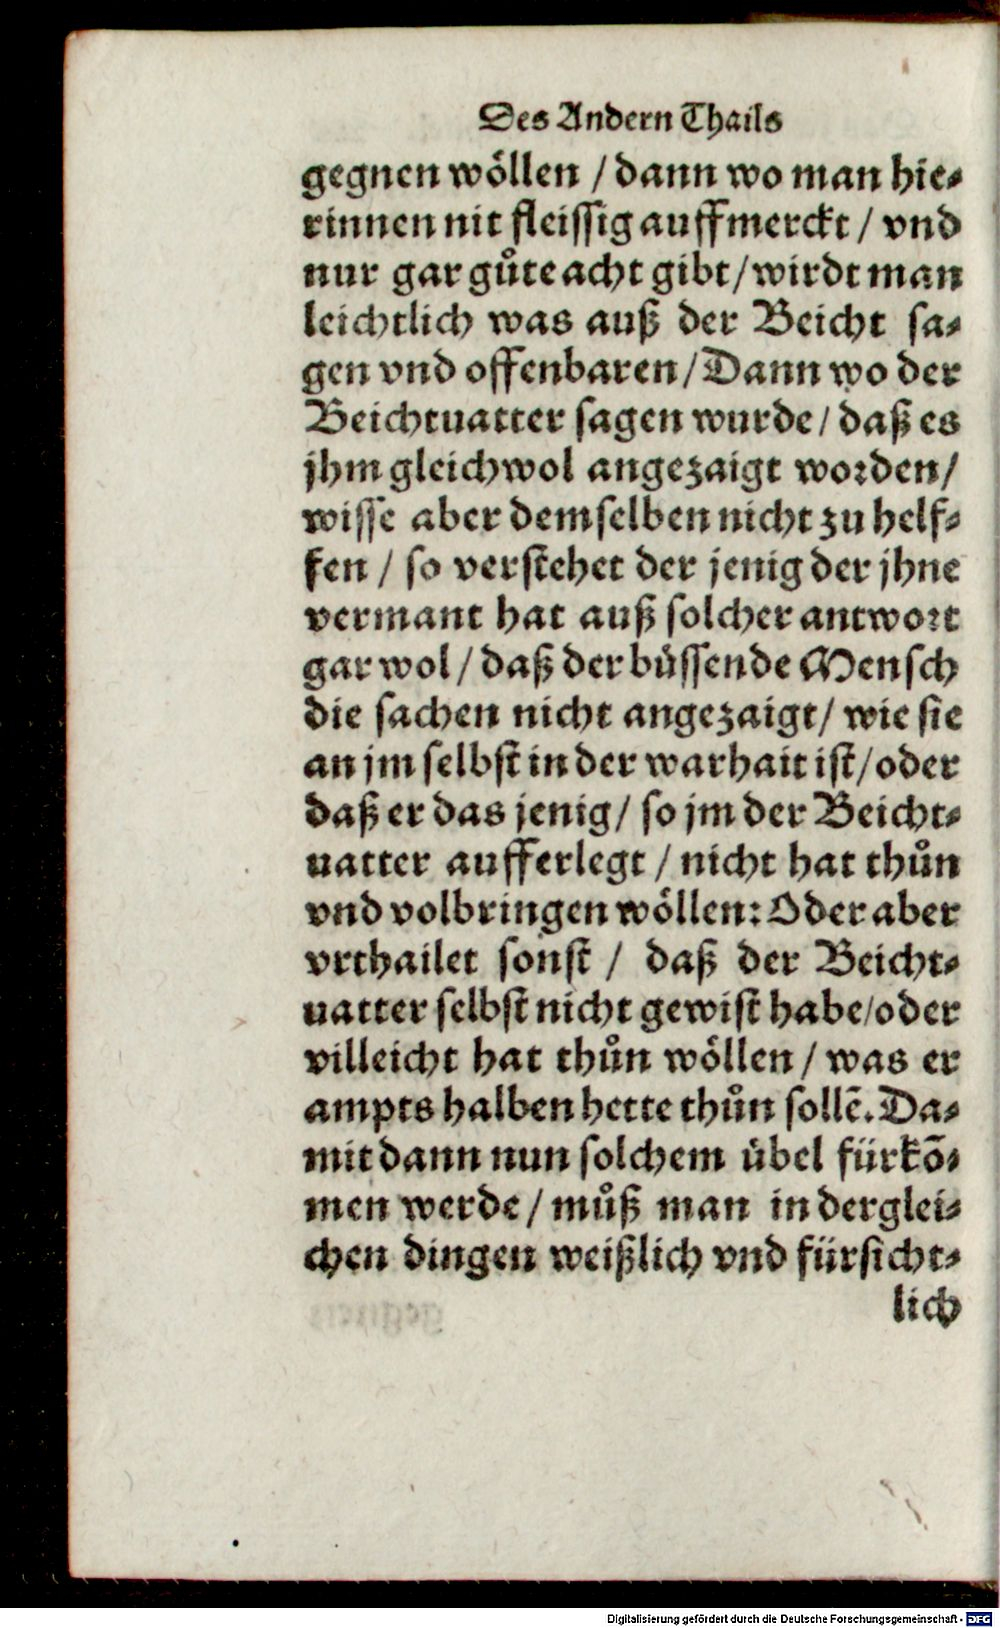 Des Andern Thails
gegnen wöllen / dann wo man hie⸗
rinnen nit fleissig auffmerckt / vnd
nur gar gůte acht gibt / wirdt man
leichtlich was auß der Beicht sa⸗
gen vnd offenbaren / Dann wo der
Beichtuatter sagen wurde / daß es
jhm gleichwol angezaigt worden /
wisse aber demselben nicht zu helf⸗
fen / so verstehet der jenig der jhne
vermant hat auß solcher antwort
gar wol / daß der büssende Mensch
die sachen nicht angezaigt / wie sie
an jm selbst in der warhait ist / oder
daß er das jenig / so jm der Beicht⸗
uatter aufferlegt / nicht hat thůn
vnd volbringen wöllen: Oder aber
vrthailet sonst / daß der Beicht⸗
uatter selbst nicht gewist habe / oder
villeicht hat thůn wöllen / was er
ampts halben hette thůn sollẽ. Da⸗
mit dann nun solchem übel fürkõ⸗
men werde / můß man in derglei⸗
chen dingen weißlich vnd fürsicht⸗
lich
Digitalisierung gefördert durch die Deutsche Forschungsgemeinschaft - DFG